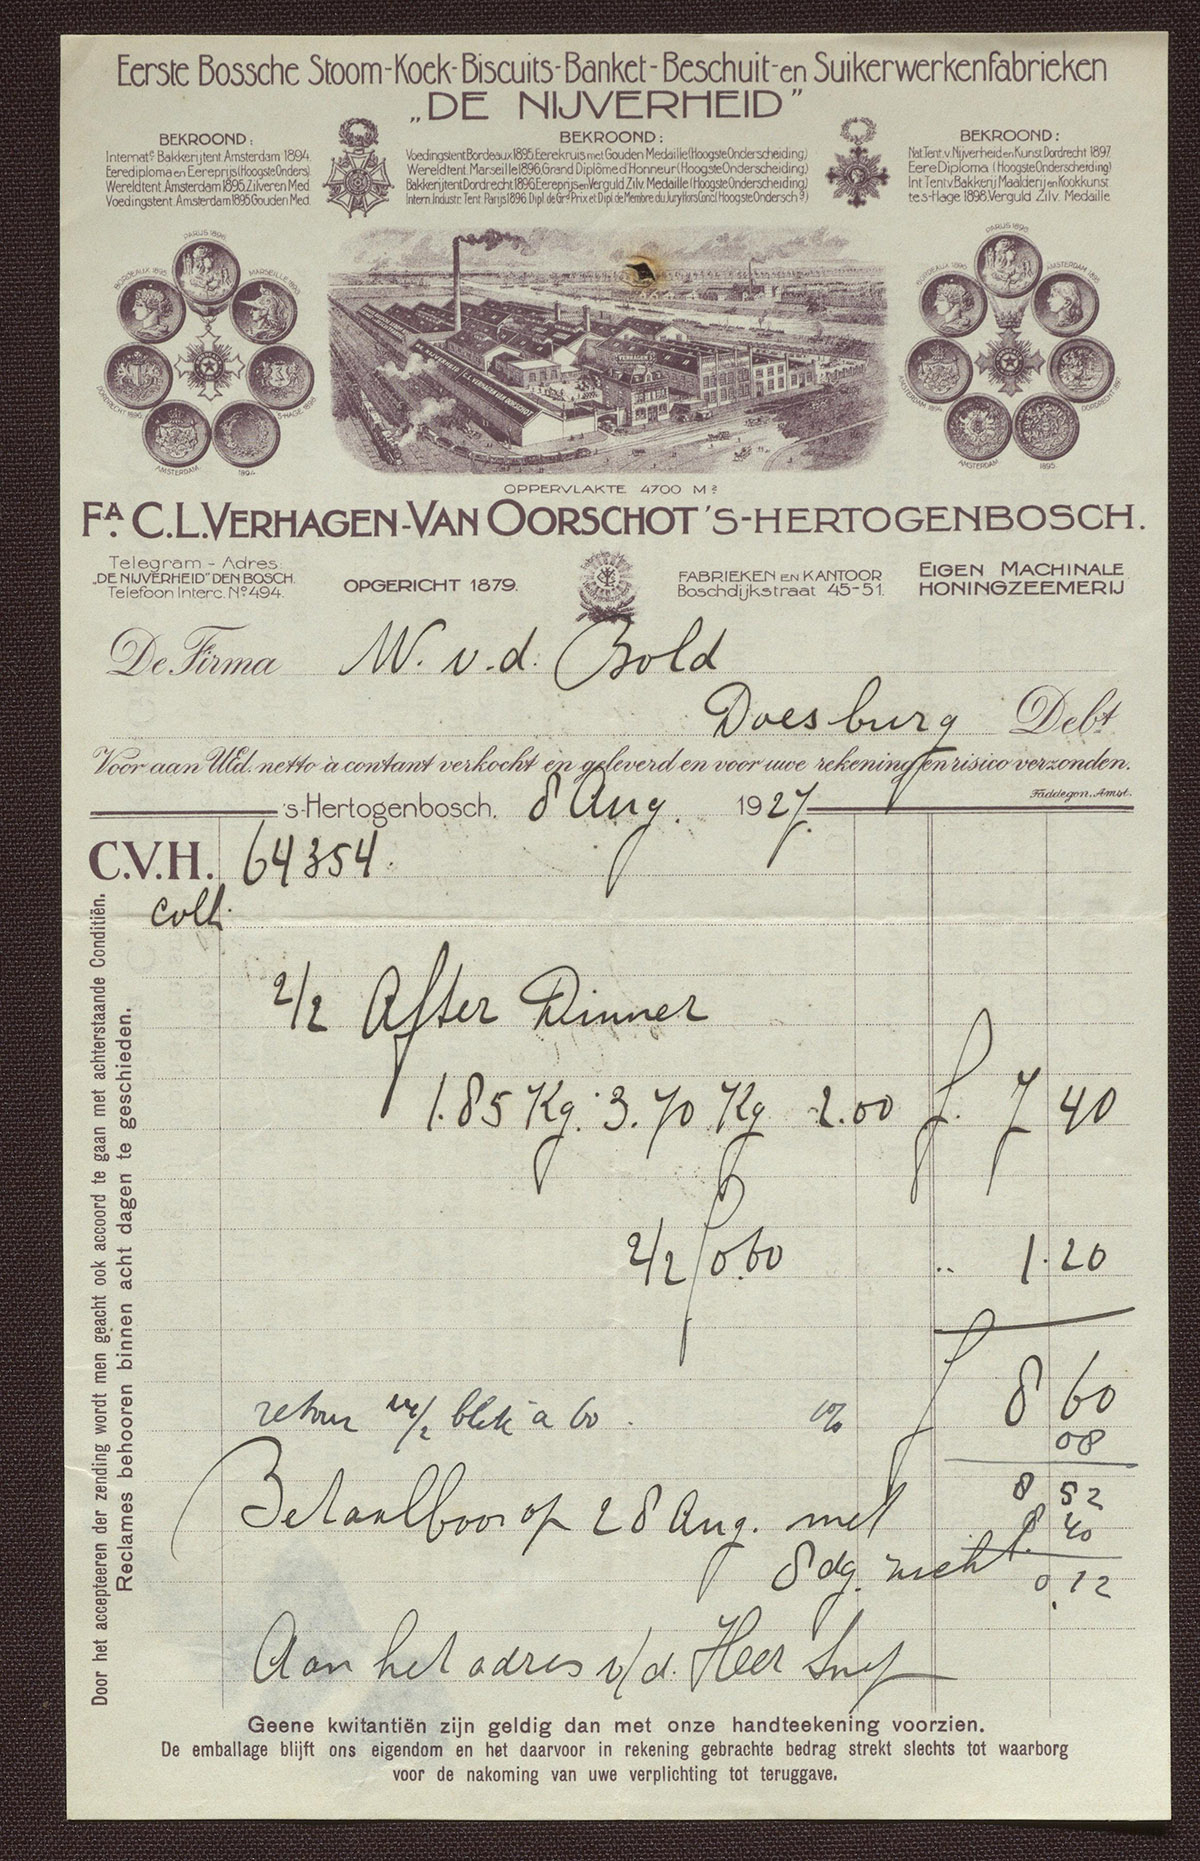 Eerste Bossche Stoom-Koek-Biscuits-Banket-Beschuit-en Suikerwerkenfabrieken
„DE NIJVERHEID”
BEKROOND:
Internatle Bakkerijtent. Amsterdam 1894.
Eerediploma en Eereprijs (Hoogste Onders.)
Wereldtent. Amsterdam 1895. Zilveren Med.
Voedingstent. Amsterdam 1895 Gouden Med.
BEKROOND:
Voedingstent Bordeaux 1895. Eerekruis met Gouden Medaille (Hoogste Onderscheiding)
Wereldtent. Marseille 1896. Grand Diplôme d'Honneur (Hoogste Onderscheiding)
Bakkerijtent Dordrecht 1896. Eereprijs en Verguld Zilv. Medaille (Hoogste Onderscheiding)
Intern. Industr. Tent Parijs 1896 Dipl. de Grd Prix et Dipl. de Membre du Jury Hors Conc. (Hoogste Ondersch g)
BEKROOND:
Nat. Tent. v. Nijverheid en Kunst Dordrecht 1897.
Eere Diploma (Hoogste Onderscheiding)
Int Tent v Bakkerij Maalderij en Kookkunst
te.s-Hage 1898. Verguld Zilv. Medaille
PARIJS 1896
BORDEAUX 1895
MARSEILLE 1896
DORDRECHT 1896
'S-HAGE 1898
AMSTERDAM
1894
PARIJS 1896
BORDEAUX 1895
AMSTERDAM 1895
AMSTERDAM 1894
DORDRECHT 1897
AMSTERDAM
1895
VERHAGEN
DE NIJVERHEID / C.L. VERHAGEN VAN OORSCHOT
OPPERVLAKTE 4700 M2
FA C.L. VERHAGEN-VAN OORSCHOT 'S-HERTOGENBOSCH.
Telegram - Adres:
„DE NIJVERHEID” DEN BOSCH.
Telefoon Interc. No 494.
OPGERICHT 1879.
FABRIEKEN EN KANTOOR
Boschdijkstraat 45-51.
EIGEN MACHINALE
HONINGZEEMERIJ
De Firma W. v.d. Bold
Doesburg Debt
Voor aan UEd. netto à contant verkocht en geleverd en voor uwe rekening en risico verzonden.
Faddegon. Amst.
's-Hertogenbosch, 8 Aug. 1927.
C.V.H. 64354.
colli.
2/2 After Dinner
1.85 Kg. 3.70 Kg 2.00 f. 7 40
2/2 f 0.60 " 1.20
f 8 60
retour 2/2 blik a 60. 1%
08
8 52
Betaalbaar op 28 Aug. met
8. 40
8 dg. zicht
0.12
Aan het adres v/d. Heer
Door het accepteeren der zending wordt men geacht ook accoord te gaan met achterstaande Conditiën.
Reclames behooren binnen acht dagen te geschieden.
Geene kwitantiën zijn geldig dan met onze handteekening voorzien.
De emballage blijft ons eigendom en het daarvoor in rekening gebrachte bedrag strekt slechts tot waarborg
voor de nakoming van uwe verplichting tot teruggave.